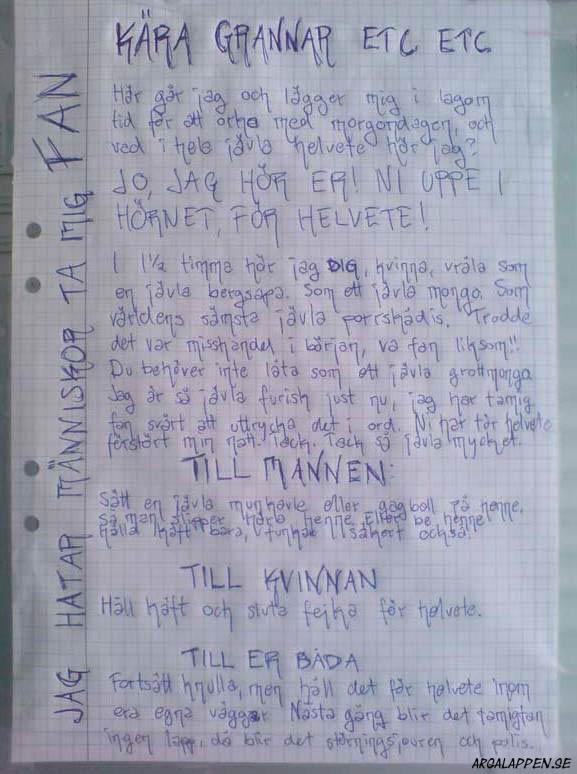 KÄRA GRANNAR ETC ETC
Här går jag och lägger mig i lagom
tid för att orka med morgondagen, och
vad i hela jävla helvete hör jag?
JO, JAG HÖR ER! NI UPPE I
HÖRNET, FÖR HELVETE!
I 1½ timma hör jag DIG, kvinna, vråla som
en jävla bergsapa. Som ett jävla mongo. Som
världens sämsta jävla porrskådis. Trodde
det var misshandel i början, va fan liksom!!
Du behöver inte låta som ett jävla grottmongo
Jag är så jävla furish just nu, jag har tamig
fan svårt att uttrycka det i ord. Ni har för helvete
förstört min natt. Tack. Tack så jävla mycket.
TILL MANNEN:
Sätt en jävla munkavle eller gagball på henne,
så man slipper höra henne. Eller be henne
hålla käft bara, funkar säkert också!
TILL KVINNAN
Håll käft och sluta fejka för helvete.
TILL ER BÅDA
Fortsätt knulla, men håll det för helvete inom
era egna väggar. Nästa gång blir det tamigfan
ingen lapp, då blir det störningsjouren och polis.
JAG HATAR MÄNNISKOR TA MIG FAN
ARGALAPPEN.SE